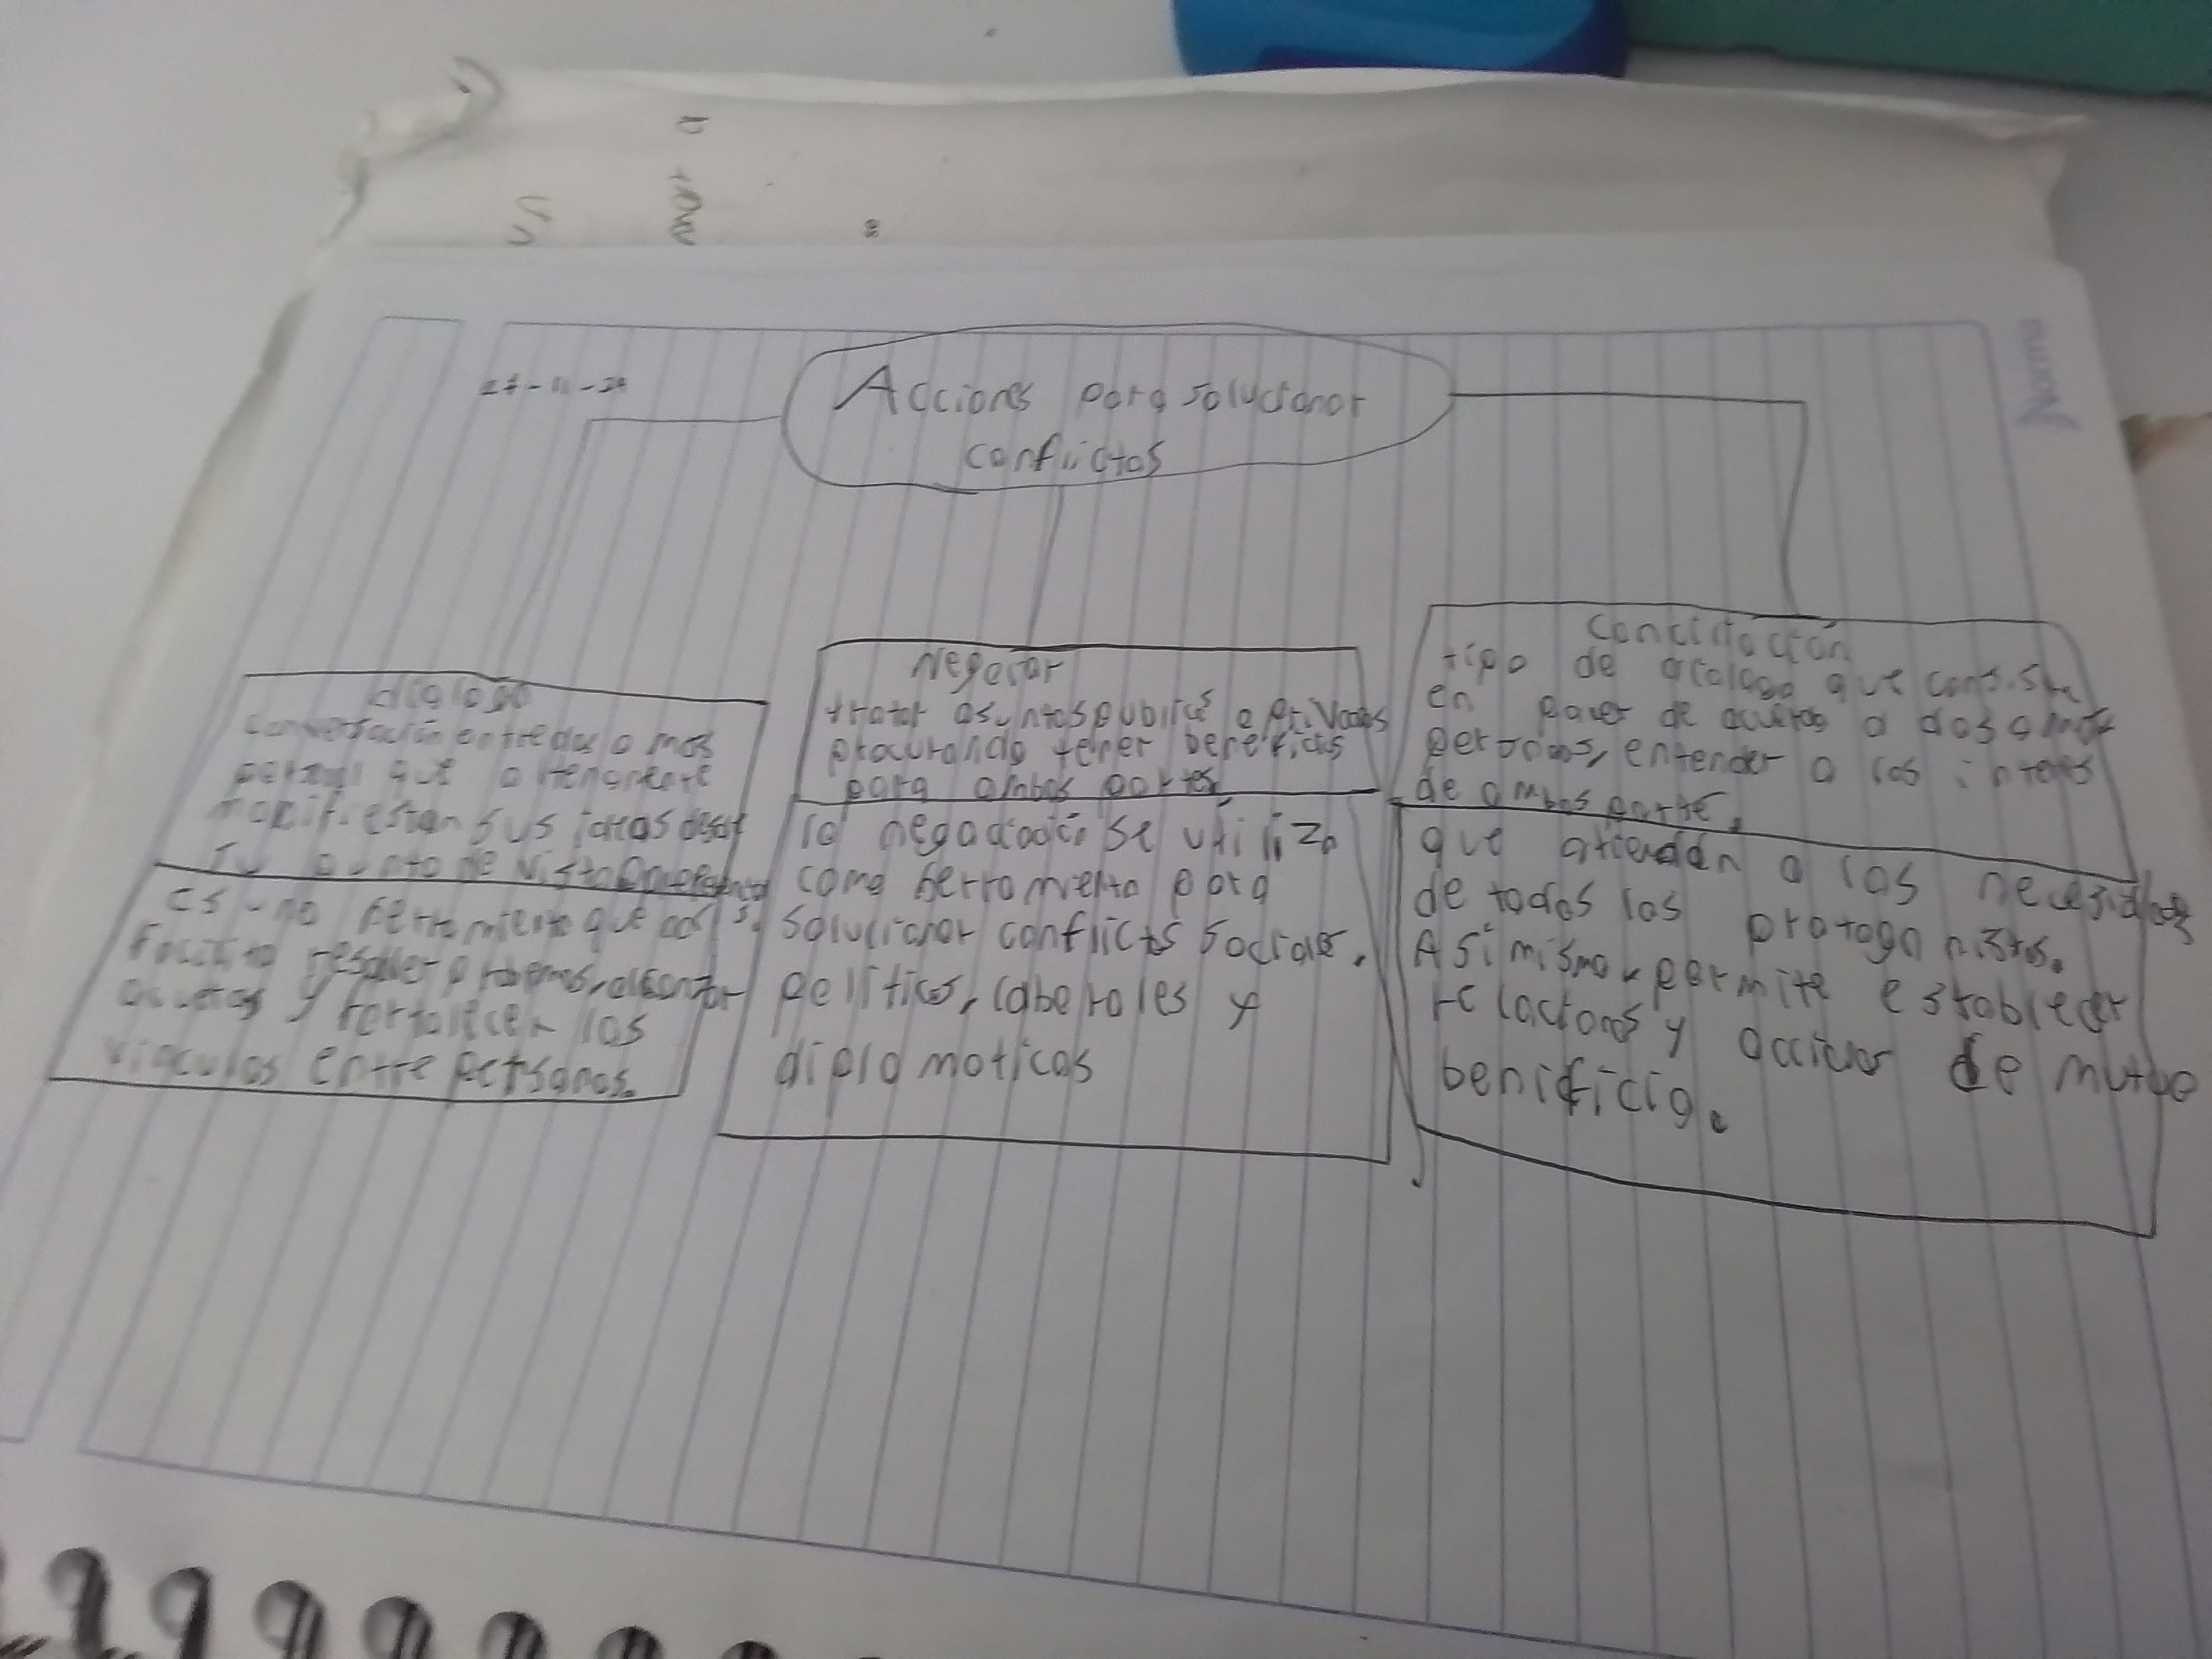 Acciones para solucionar
conflictos
dialogo
conversación entre dos o mas
que altenamente
manifiestan sus ideas
punto de vista
es una herramienta que
facilita resolver problemas, alcanzar
acuerdos y fortalecer los
vinculos entre personas.
Negociar
tratar asuntos publics o privados
procurando tener beneficios
para ambos partes
la se utiliza
como herramienta para
solucionar conflictos sociales,
politicos, laborales y
diplomaticos
Conciliación
tipo de dialogo que consiste
en poner de acuerdo a dos o mas
personas, entender a los interes
de ambas parte,
que atiendan a las necesidades
de todos los protagonistas.
Asi mismo, permite establecer
relaciones y de mutuo
benificio.
Norma